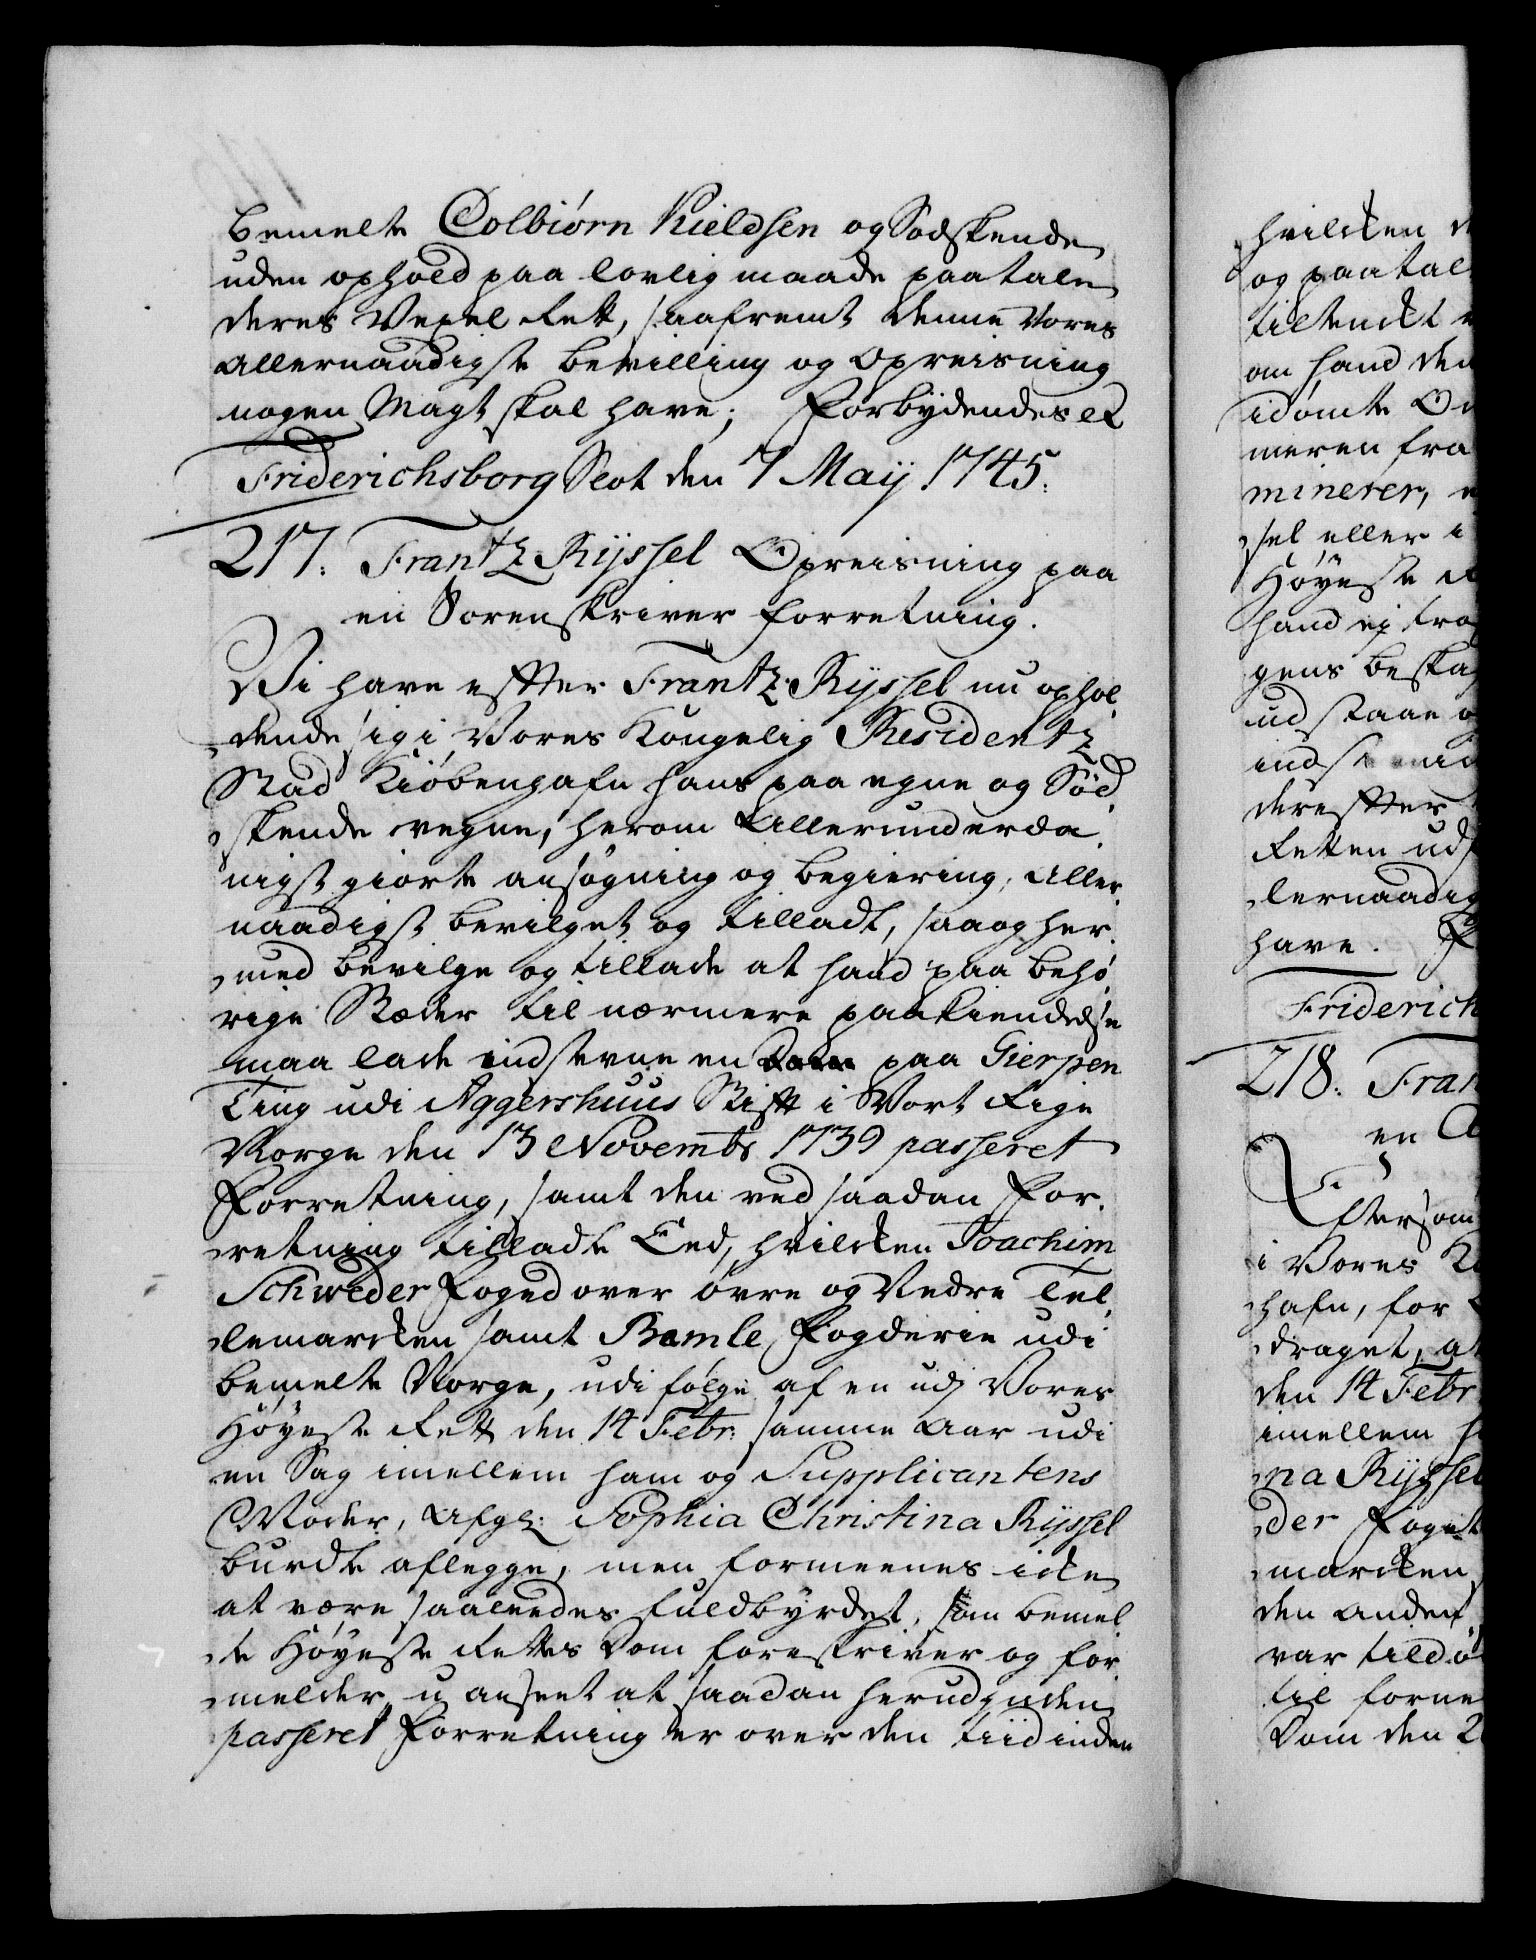 bemelte Colbiørn Kieldsen og Sødskende
uden ophold paa lovlig maade paatale
deres Vexel Rett, saafremt denne Vores
allernaadigste bevilling og Opreisning
nogen Magt skal have; Forbydendes etc
Friderichsborg Slot den 7 Maij 1745.
217. Frantz Rijssel Opreisning paa
en Sorenskriver Forretning.
Vi have effter Frantz Rijssel nu ophol-
dende sig i Vores Kongelig Residentz
Stad Kiøbenhafn hans paa egne og Sød-
skende vegne, herom Allerunderda-
nigst giorte ansøgning og begiering, aller-
naadigst bevilget og tilladt, saa og her-
med bevilge og tillade at hand paa behø-
rige Stæder til nærmere paakiendelse
maa lade indstevne en paa Gierpen
Ting udi Aggershuus Stift i Vort Rige
Norge den 13 Novembr 1739 passeret
Forretning, samt den ved saadan For-
retning tilladte Eed, hvilcken Joachim
Schweder Foged over øvre og Nedre Tel-
lemarcken samt Bamle Fogderie udi
bemelte Norge, udi følge af en udj Vores
Høyeste Rett den 14 Febr: samme aar udi
en Sag imellem ham og Supplicantens
Moder, Afgl: Sophia Christina Rijssel
burdte aflegge, men formeenes icke
at være saaledes fuldbyrdet, som bemel-
te Høyeste Rettes Dom foreskriver og for-
melder, u anseet at saadan herudjnden
passeret Forretning er over den tiid inden
hvilcken
og paatal
tiltenckt
om hand den
idømte
meren fra
minerer,
sel eller i
Høyeste
hand ej
gens
udstaae
derefter
Retten
lernaadig
have.
Friderich
218. Fran
en
Efftersom
i Vores
hafn, for
draget, at
den 14 Febr
imellem
na Rijssel
der Foget
marcken
den anden
var
til forne
Dom den 2